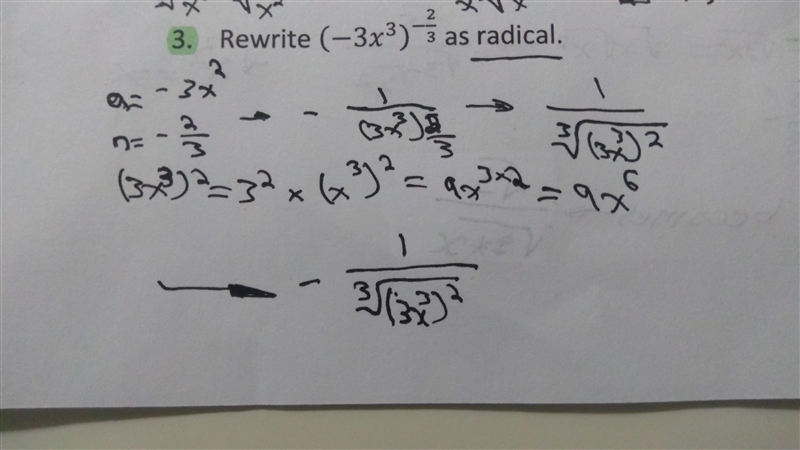 3. Rewrite (−3x³)^(−2/3) as radical.
a= - 3x²
n= - 2/3 → - 1/(3x³)^(2/3) → 1/∛(3x³)²
(3x³)² = 3² × (x³)² = 9x^(3×2) = 9x⁶
→ - 1/∛(3x³)²